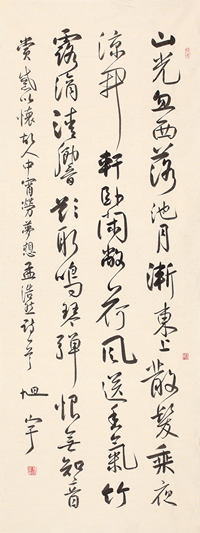 山光忽西落池月漸東上散髮乘夜
涼開軒臥閑敞荷風送香氣竹
露滴清響欲取鳴琴彈恨無知音
賞感此懷故人中宵勞夢想孟浩然詩 旭宇